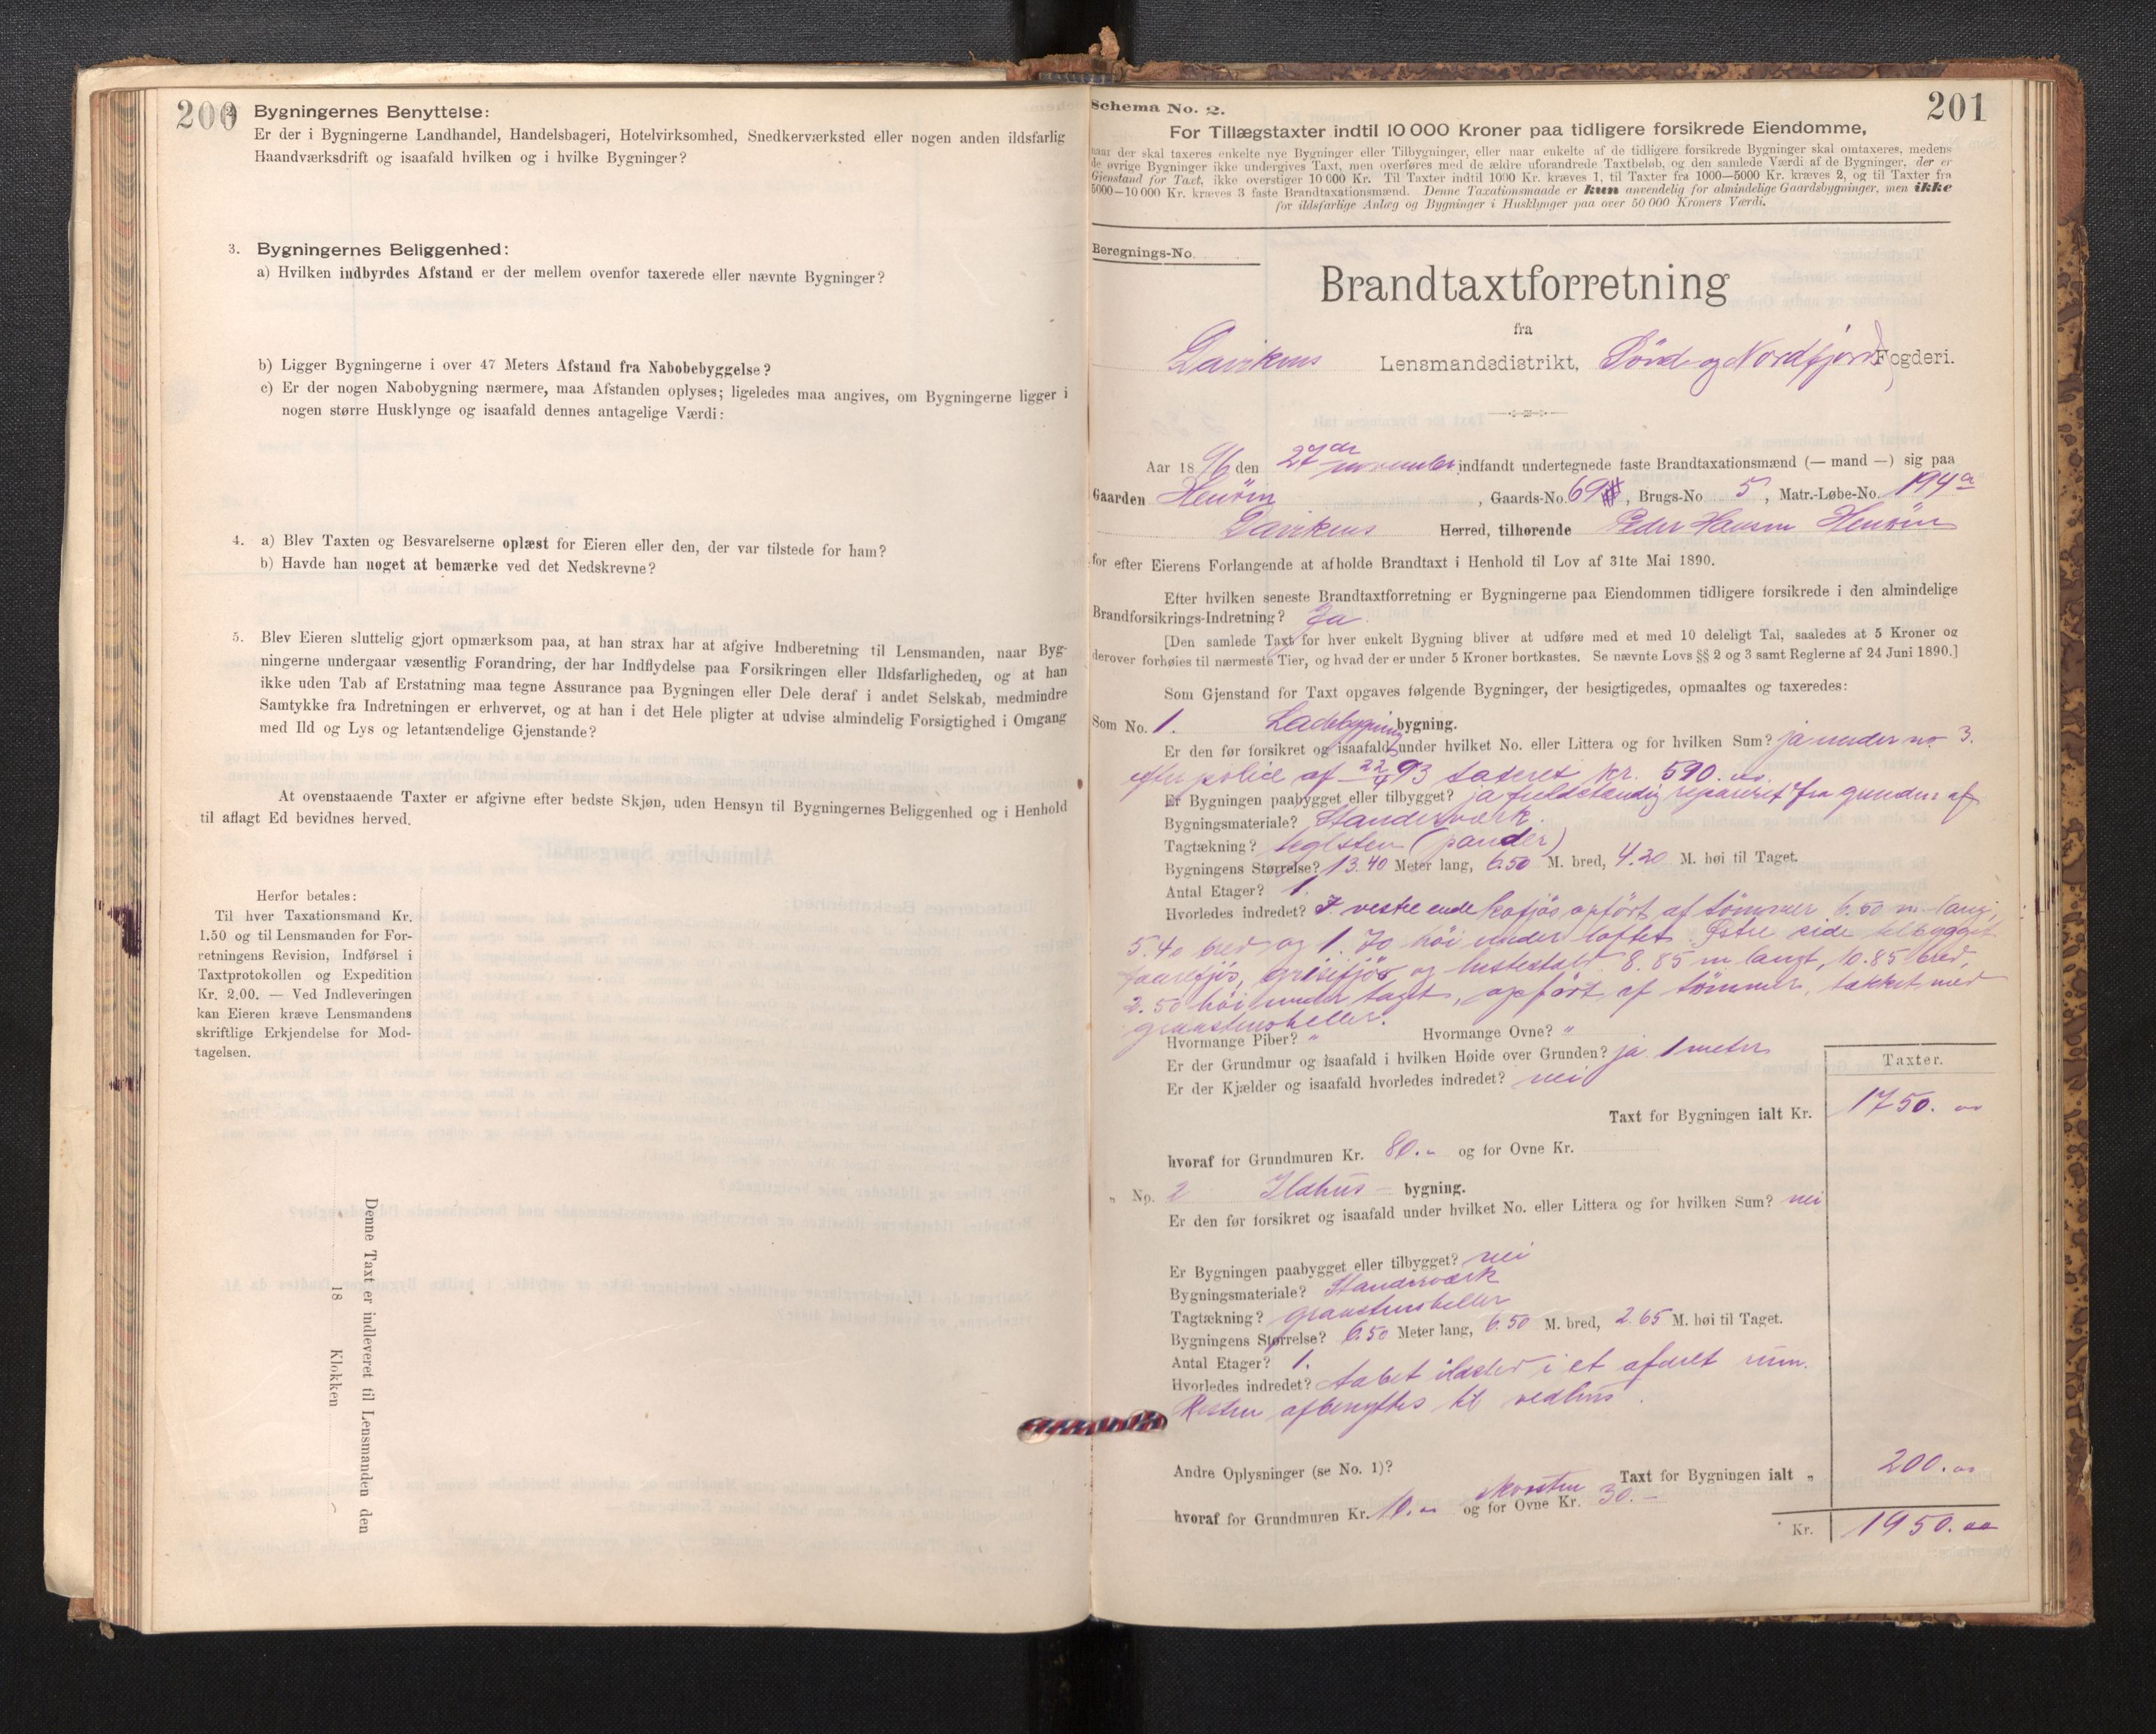 200
2. Bygningernes Benyttelse:
Er der i Bygningerne Landhandel, Handelsbageri, Hotelvirksomhed, Snedkerværksted eller nogen anden ildsfarlig
Haandværksdrift og isaafald hvilken og i hvilke Bygninger?
3. Bygningernes Beliggenhed:
a) Hvilken indbyrdes Afstand er der mellem ovenfor taxerede eller nævnte Bygninger?
b) Ligger Bygningerne i over 47 Meters Afstand fra Nabobebyggelse?
c) Er der nogen Nabobygning nærmere, maa Afstanden oplyses; ligeledes maa angives, om Bygningerne ligger i
nogen større Husklynge og isaafald dennes antagelige Værdi:
4. a) Blev Taxten og Besvarelserne oplæst for Eieren eller den, der var tilstede for ham?
b) Havde han noget at bemærke ved det Nedskrevne?
5. Blev Eieren sluttelig gjort opmærksom paa, at han strax har at afgive Indberetning til Lensmanden, naar Byg-
ningerne undergaar væsentlig Forandring, der har Indflydelse paa Forsikringen eller Ildsfarligheden, og at han
ikke uden Tab af Erstatning maa tegne Assurance paa Bygningen eller Dele deraf i andet Selskab, medmindre
Samtykke fra Indretningen er erhvervet, og at han i det Hele pligter at udvise almindelig Forsigtighed i Omgang
med Ild og Lys og letantændelige Gjenstande?
At ovenstaaende Taxter er afgivne efter bedste Skjøn, uden Hensyn til Bygningernes Beliggenhed og i Henhold
til aflagt Ed bevidnes herved.
Herfor betales:
Til hver Taxationsmand Kr.
1.50 og til Lensmanden for For-
retningens Revision, Indførsel i
Taxtprotokollen og Expedition
Kr. 2.00. — Ved Indleveringen
kan Eieren kræve Lensmandens
skriftlige Erkjendelse for Mod-
tagelsen.
Denne Taxt er indleveret til Lensmanden den
18 Klokken
Schema No. 2.
201
For Tillægstaxter indtil 10 000 Kroner paa tidligere forsikrede Eiendomme,
naar der skal taxeres enkelte nye Bygninger eller Tilbygninger, eller naar enkelte af de tidligere forsikrede Bygninger skal omtaxeres, medens
de øvrige Bygninger ikke undergives Taxt, men overføres med de ældre uforandrede Taxtbeløb, og den samlede Værdi af de Bygninger, der er
Gjenstand for Taxt, ikke overstiger 10 000 Kr. Til Taxter indtil 1000 Kr. kræves 1, til Taxter fra 1000—5000 Kr. kræves 2, og til Taxter fra
5000—10 000 Kr. kræves 3 faste Brandtaxationsmænd. Denne Taxationsmaade er kun anvendelig for almindelige Gaardsbygninger, men ikke
for ildsfarlige Anlæg og Bygninger i Husklynger paa over 50 000 Kroners Værdi.
Beregnings-No.
Brandtaxtforretning
fra
Davikens Lensmandsdistrikt, Sönd og Nordfjords Fogderi.
Aar 1896 den 27de november indfandt undertegnede faste Brandtaxationsmænd (— mand —) sig paa
Gaarden Henöen, Gaards-No. 69, Brugs-No 5, Matr.-Løbe-No. 194a
Davikens Herred, tilhørende Peder Hansen Henöen
for efter Eierens Forlangende at afholde Brandtaxt i Henhold til Lov af 31te Mai 1890.
Efter hvilken seneste Brandtaxtforretning er Bygningerne paa Eiendommen tidligere forsikrede i den almindelige
Brandforsikrings-Indretning? Ja
[Den samlede Taxt for hver enkelt Bygning bliver at udføre med et med 10 deleligt Tal, saaledes at 5 Kroner og
derover forhøies til nærmeste Tier, og hvad der er under 5 Kroner bortkastes. Se nævnte Lovs §§ 2 og 3 samt Reglerne af 24 Juni 1890.]
Som Gjenstand for Taxt opgaves følgende Bygninger, der besigtigedes, opmaaltes og taxeredes:
Som No. 1. Ladebygning bygning.
Er den før forsikret og isaafald under hvilket No. eller Littera og for hvilken Sum? ja under no 3.
efter police af 22/4 93 taxeret kr. 590.
Er Bygningen paabygget eller tilbygget? ja fuldstændig reparert fra grunden af
Bygningsmateriale? Standerværk.
Tagtækning? teglsten (pander)
Bygningens Størrelse? 13.40 Meter lang, 6.50 M. bred, 4.20 M. høi til Taget.
Antal Etager? 1.
Hvorledes indredet? I vestre ende kofjös opfört af tömmer 6.50 m lang,
5.40 bred og 1.70 höi under loftet. Østre side tilbygget
faarefjös, grisefjös og hestestald 8.85 m langt, 10.85 bred,
2.50 höi under taget, opfört af tömmer, takket med
graastensheller.
Hvormange Piber? " Hvormange Ovne? "
Er der Grundmur og isaafald i hvilken Høide over Grunden? ja 1 meter
Er der Kjælder og isaafald hvorledes indredet? nei
Taxter.
Taxt for Bygningen ialt Kr. 1750.
hvoraf for Grundmuren Kr. 80. og for Ovne Kr.
„ No. 2 Ildhus bygning.
Er den før forsikret og isaafald under hvilket No. eller Littera og for hvilken Sum? nei
Er Bygningen paabygget eller tilbygget? nei
Bygningsmateriale? Standerværk
Tagtækning? graastensheller
Bygningens Størrelse? 6.50 Meter lang, 6.50 M. bred, 2.65 M. høi til Taget.
Antal Etager? 1.
Hvorledes indredet? ildsted i et afdelt rum.
Resten afbenyttes til vedhus.
Andre Oplysninger (se No. 1)? Taxt for Bygningen ialt „ 200.
skorsten
hvoraf for Grundmuren Kr. 10. og for Ovne Kr. 30.
Kr. 1950.